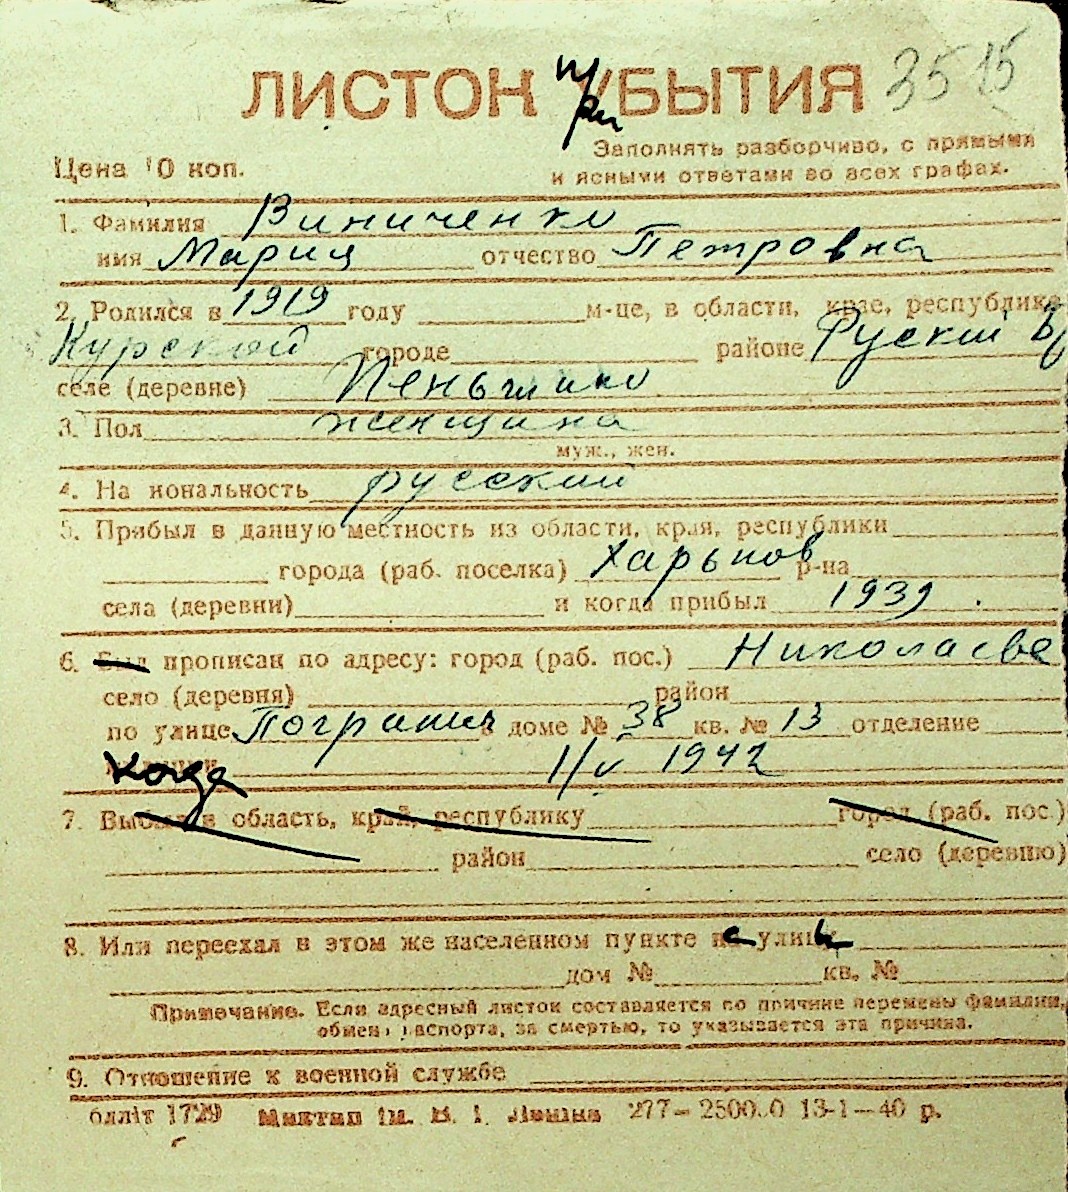 ЛИСТОК УБЫТИЯ 3515
при
Заполнять разборчиво, с прямыми
Цена 10 коп. и ясными ответами во всех графах.
1. Фамилия Виниченко
имя Мария отчество Петровна
2. Родился в 1919 году м-це, в области, крае, республике
Курской городе районе
селе (деревне)
3. Пол женщина
муж., жен.
4. Национальность русский
5. Прибыл в данную местность из области, края, республики
города (раб. поселка) Харьков р-на
села (деревни) и когда прибыл 1939.
6. Был прописан по адресу: город (раб. пос.) Николаеве
село (деревня) район
по улице Погранич в доме № 38 кв. № 13 отделение
когда 1/V 1942
7. Выбыл в область, край, республику город (раб. пос.)
район село (деревню)
8. Или переехал в этом же населенном пункте с улицы
дом № кв. №
Примечание. Если адресный листок составляется по причине перемены фамилии,
обмена паспорта, за смертью, то указывается эта причина.
9. Отношение к военной службе
1729 ім. В. І. Леніна 277— 13-1—40 р.